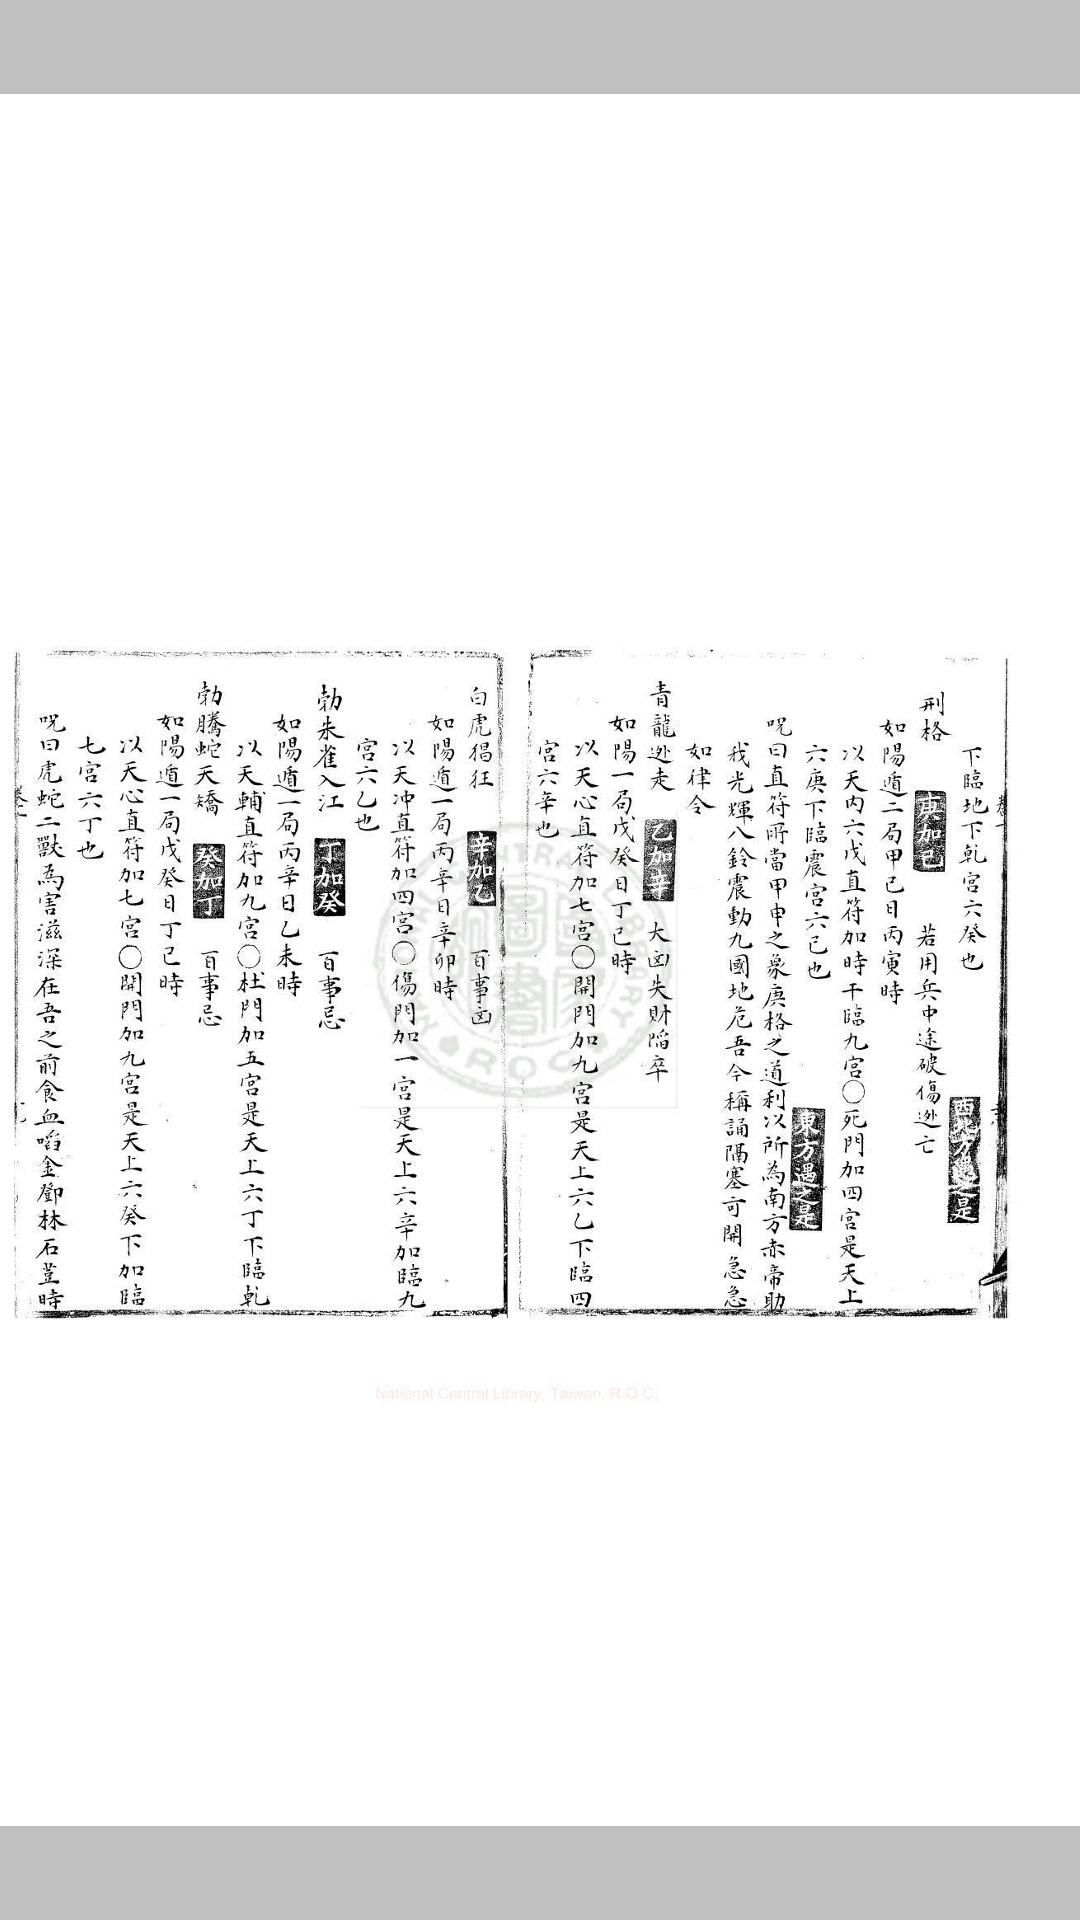 下臨地下乾宮六癸也　西北方遇之是
刑格　庚加己　若用兵中途破傷迯亡
如陽遁二局甲己日丙寅時
以天內六戊直符加時干臨九宮〇死門加四宮是天上
六庚下臨震宮六己也　東方遇之是
咒曰直符所當甲申之象庚格之道利以所為南方赤帝助
我光輝八鈴震動九國地危吾今稱誦隔塞可開急急
如律令
青龍迯走　乙加辛　大凶失財陷卒
如陽一局戊癸日丁巳時
以天心直符加七宮〇開門加九宮是天上六乙下臨四
宮六辛也
白虎猖狂　辛加乙　百事凶
如陽遁一局丙辛日辛卯時
以天冲直符加四宮〇傷門加一宮是天上六辛加臨九
宮六乙也
勃朱雀入江　丁加癸　百事忌
如陽遁一局丙辛日乙未時
以天輔直符加九宮〇杜門加五宮是天上六丁下臨乾
勃騰蛇天矯　癸加丁　百事忌
如陽遁一局戊癸日丁巳時
以天心直符加七宮〇開門加九宮是天上六癸下加臨
七宮六丁也
咒曰虎蛇二獸為害滋深在吾之前食血啗金鄧林石荳時
National Central Library, Taiwan, R.O.C.